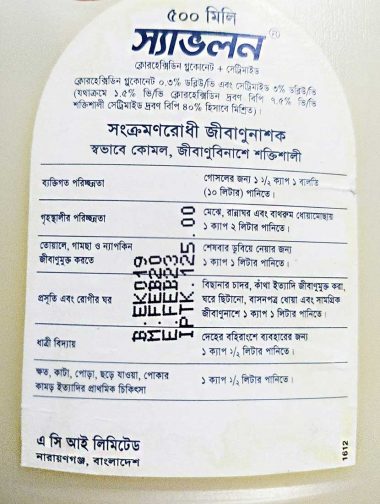 ৫০০ মিলি
স্যাভলন®
ক্লোরহেক্সিডিন গ্লুকোনেট + সেট্রিমাইড
ক্লোরহেক্সিডিন গ্লুকোনেট ০.৩% ডব্লিউ/ভি এবং সেট্রিমাইড ৩% ডব্লিউ/ভি
(যথাক্রমে ১.৫% ভি/ভি ক্লোরহেক্সিডিন দ্রবণ বিপি ৭.৫% ভি/ভি
শক্তিশালী সেট্রিমাইড দ্রবণ বিপি ৪০% হিসাবে মিশ্রিত)।
সংক্রমণরোধী জীবাণুনাশক
স্বভাবে কোমল, জীবাণুবিনাশে শক্তিশালী
ব্যক্তিগত পরিচ্ছন্নতা
গোসলের জন্য ১ ১/২ ক্যাপ ১ বালতি
(১০ লিটার) পানিতে।
গৃহস্থালীর পরিচ্ছন্নতা
মেঝে, রান্নাঘর এবং বাথরুম ধোয়ামোছায়
১ ক্যাপ ২ লিটার পানিতে।
তোয়ালে, গামছা ও ন্যাপকিন
জীবাণুমুক্ত করতে
শেষবার ডুবিয়ে নেয়ার জন্য
১ ক্যাপ ১ লিটার পানিতে।
প্রসূতি এবং রোগীর ঘর
বিছানার চাদর, কাঁথা ইত্যাদি জীবাণুমুক্ত করা,
ঘরে ছিটানো, বাসনপত্র ধোয়া এবং সামগ্রিক
জীবাণুনাশে ১ ক্যাপ ১ লিটার পানিতে।
ধাত্রী বিদ্যায়
দেহের বহিরাংশে ব্যবহারের জন্য
১ ক্যাপ ১/২ লিটার পানিতে।
ক্ষত, কাটা, পোড়া, ছড়ে যাওয়া, পোকার
কামড় ইত্যাদির প্রাথমিক চিকিত্সা
১ ক্যাপ ১/২ লিটার পানিতে।
B: EK019
M: FEB20
E: FEB23
IPTK.125.00
এ সি আই লিমিটেড
নারায়ণগঞ্জ, বাংলাদেশ
1612